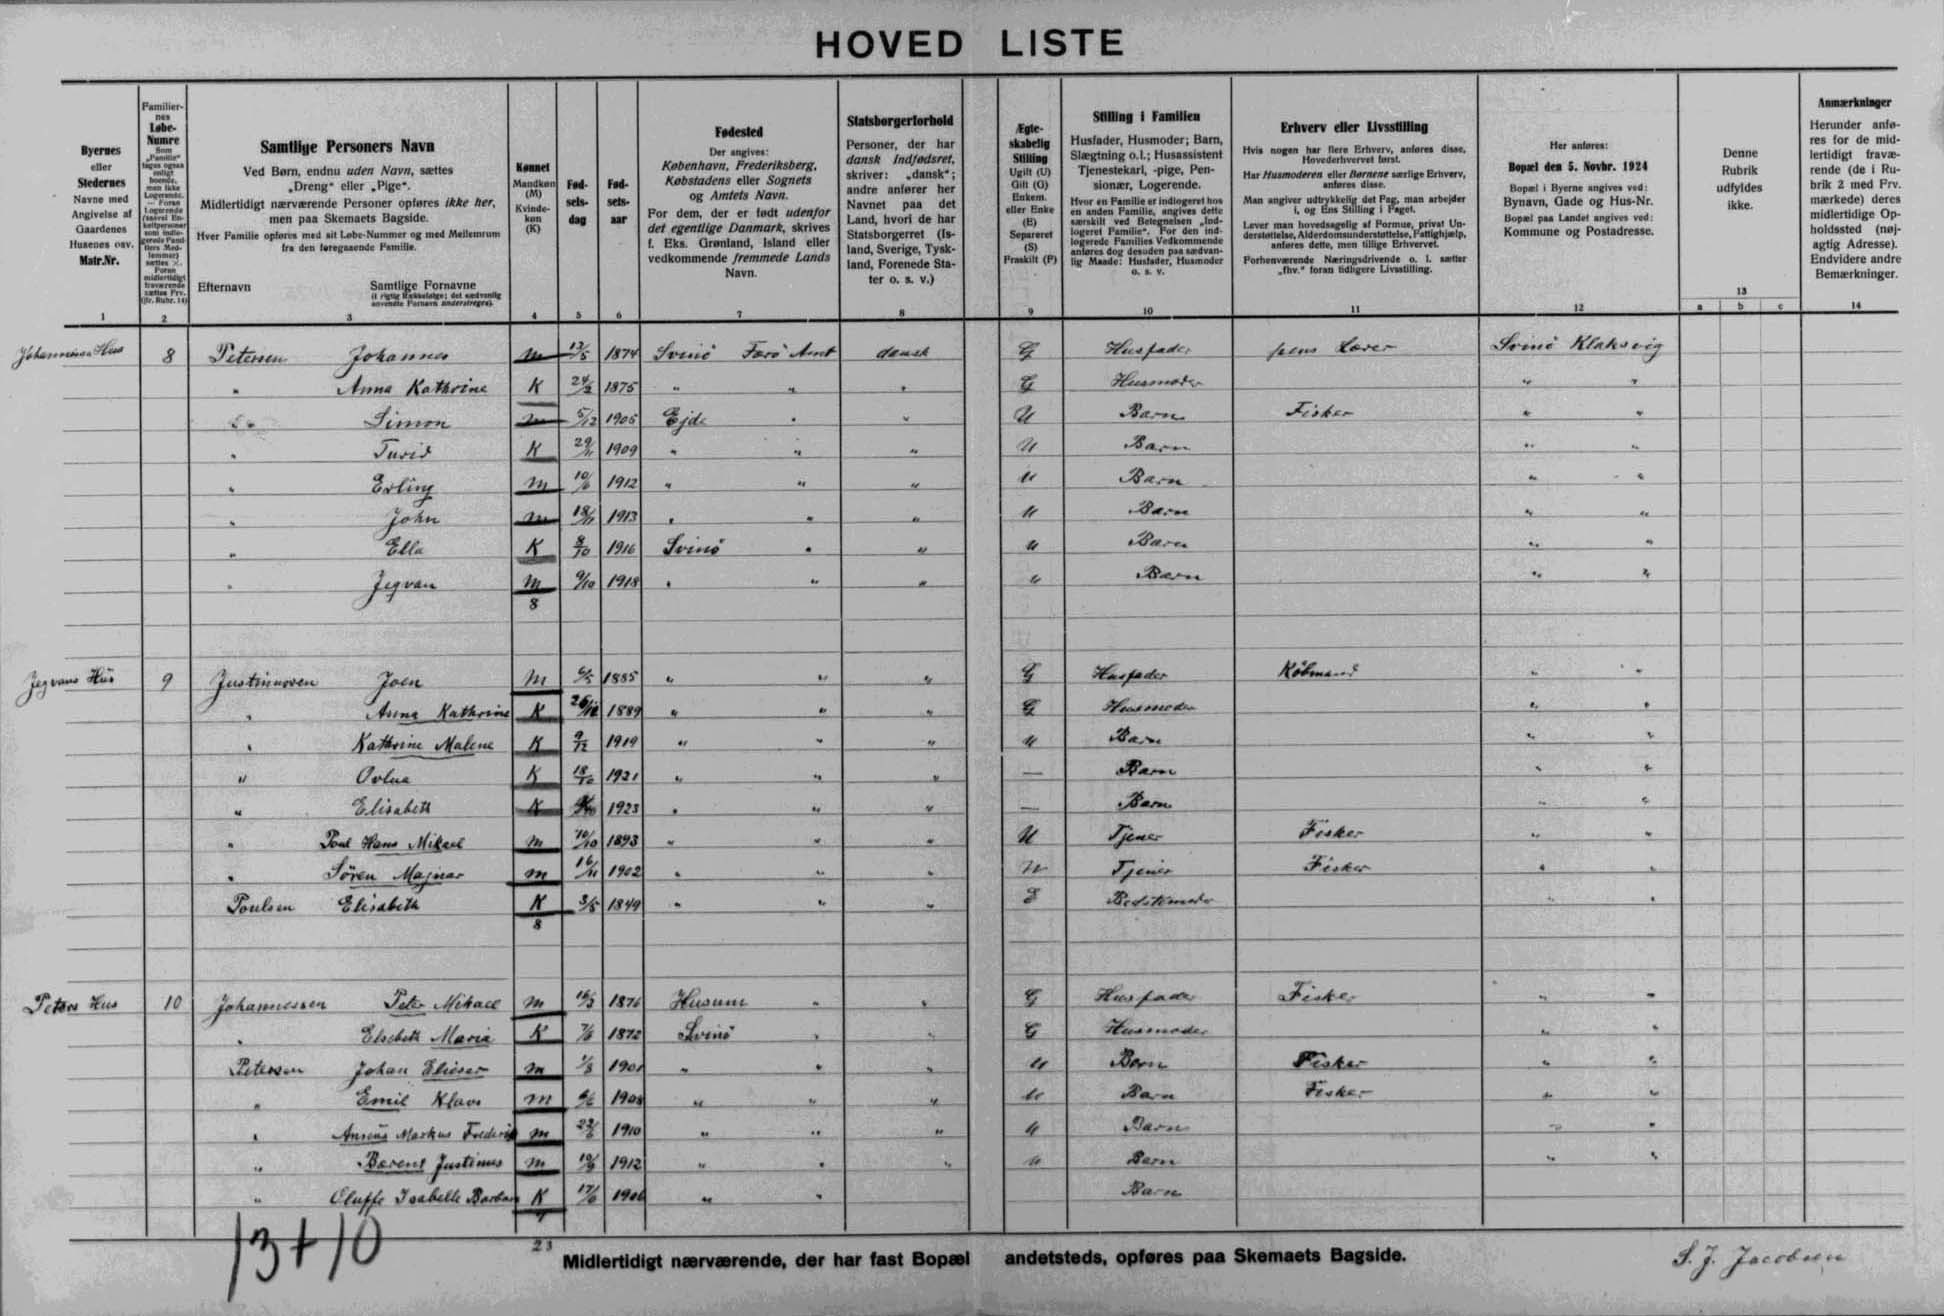 HOVED LISTE
Byernes
eller
Stedernes
Navne med
Angivelse af
Gaardenes
Husenes osv.
Matr.Nr.
1
Familier-
nes
Løbe-
Numre
Som
„Familie“
tages ogsaa
enligt
boende,
men ikke
Logerende.
2
Samtlige Personers Navn
Ved Børn, endnu uden Navn, sættes
„Dreng“ eller „Pige“.
Midlertidigt nærværende Personer opføres ikke her,
men paa Skemaets Bagside.
Hver Familie opføres med sit Løbe-Nummer og med Mellemrum
fra den foregaaende Familie.
Efternavn Samtlige Fornavne
(i rigtig Rækkefølge; det sædvanlig
anvendte Fornavn understreges).
3
Kønnet
Mandkøn
(M)
Kvinde-
køn
(K)
4
Fød-
sels-
dag
5
Fød-
sels-
aar
6
Fødested
Der angives:
København, Frederiksberg,
Købstadens eller Sognets
og Amtets Navn.
For dem, der er født udenfor
det egentlige Danmark, skrives
f. Eks. Grønland, Island eller
vedkommende fremmede Lands
Navn.
7
Statsborgerforhold
Personer, der har
dansk Indfødsret,
skriver: „dansk“;
andre anfører her
Navnet paa det
Land, hvori de har
Statsborgerret (Is-
land, Sverige, Tysk-
land, Forenede Sta-
ter o. s. v.)
8
Ægte-
skabelig
Stilling
Ugift (U)
Gift (G)
Enkem.
eller Enke
(E)
Separeret
(S)
Fraskilt (F)
9
Stilling i Familien
Husfader, Husmoder; Barn,
Slægtning o.l.; Husassistent
Tjenestekarl, -pige, Pen-
sionær, Logerende.
Hvor en Familie er indlogeret hos
en anden Familie, angives dette
særskilt ved Betegnelsen „Ind-
logeret Familie“. For den ind-
logerede Families Vedkommende
anføres dog desuden paa sædvan-
lig Maade: Husfader, Husmoder
o. s. v.
10
Erhverv eller Livsstilling
Hvis nogen har flere Erhverv, anføres disse,
Hovederhvervet først.
Har Husmoderen eller Børnene særlige Erhverv,
anføres disse.
Man angiver udtrykkelig det Fag, man arbejder
i, og Ens Stilling i Faget.
Lever man hovedsagelig af Formue, privat Un-
derstøttelse, Alderdomsunderstøttelse, Fattighjælp,
anføres dette, men tillige Erhvervet.
Forhenværende Næringsdrivende o. l. sætter
„fhv.“ foran tidligere Livsstilling.
11
Her anføres:
Bopæl den 5. Novbr. 1924
Bopæl i Byerne angives ved:
Bynavn, Gade og Hus-Nr.
Bopæl paa Landet angives ved:
Kommune og Postadresse.
12
Denne
Rubrik
udfyldes
ikke.
13
a b c
Anmærkninger
Herunder anfø-
res for de mid-
lertidigt fravæ-
rende (de i Ru-
brik 2 med Frv.
mærkede) deres
midlertidige Op-
holdssted (nøj-
agtig Adresse).
Endvidere andre
Bemærkninger.
14
Hus 8 Petersen Johannes m 13/5 1874 Svinö Færö Amt dansk G Husfader pens Lærer Svinö Klaksvig
" Anna Kathrine K 24/2 1875 " " " G Husmoder " "
" Simon m 5/12 1905 Ejde " " U Barn Fisker " "
" Turid K 29/11 1909 " " " U Barn " "
" Erling m 1912 " " " U Barn " "
" John m 18/11 1913 " " " U Barn " "
" Ella K 8/10 1916 Svinö " " U Barn " "
" Jegvan m 9/10 1918 " " " U Barn " "
8
Jegvans Hus 9 Justinussen Joen M 6/5 1885 " " " G Husfader Købmand " "
" Anna Kathrine K 1889 " " " G Husmoder " "
" Kathrine Malene K 9/12 1919 " " " U Barn " "
" Ovlua K 18/10 1921 " " " — Barn " "
" Elisabeth K 1923 " " " — Barn " "
" Poul Hans Mikael m 1893 " " " U Tjener Fisker " "
" Søren Magnar m 16/11 1902 " " " U Tjener Fisker " "
Poulsen Elisabeth K 3/5 1849 " " " E Bedstemoder " "
8
Peters Hus 10 Johannessen Peter Mikael m 1876 Husum " " G Husfader Fisker " "
" Elsebeth Maria K 1872 Svinö " " G Husmoder " "
Petersen Johan Elieser m 1/8 1901 " " " U Barn Fisker " "
" Emil Klavs m 1908 " " " U Barn Fisker " "
" Markus Frederik m 1910 " " " U Barn " "
" Barent Justinus m 1912 " " " U Barn " "
" Oluffe Isabelle Barbara K 1906 " " Barn
7
13+10
23
Midlertidigt nærværende, der har fast Bopæl andetsteds, opføres paa Skemaets Bagside.
S. J. Jacobsen